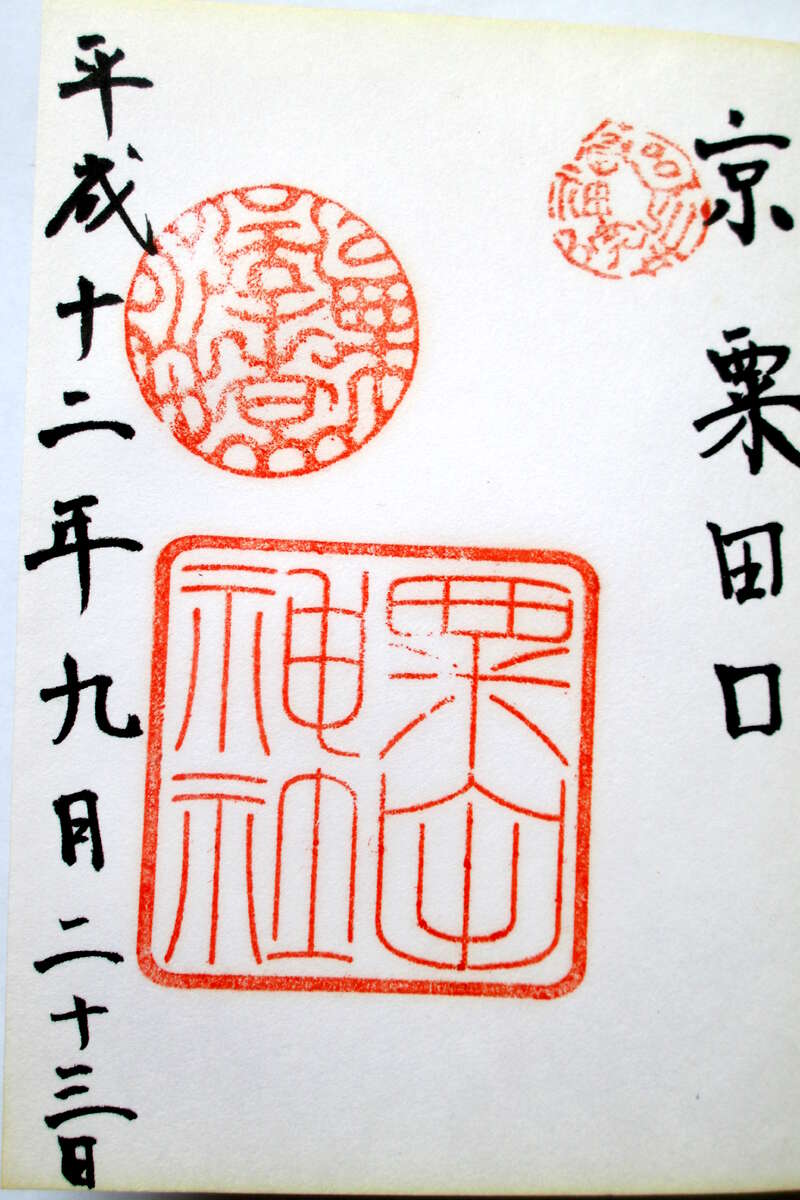 京粟田口
粟田
神社
平成十二年九月二十三日